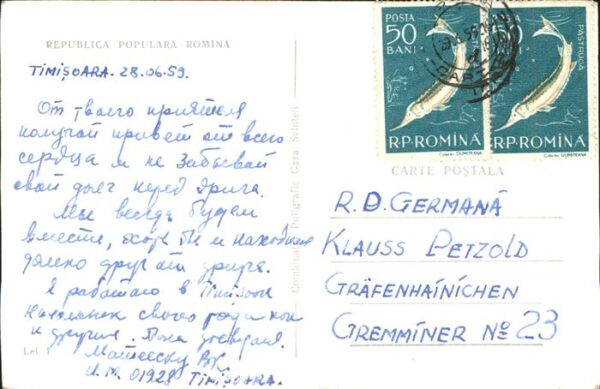 REPUBLICA POPULARA ROMÎNA
TIMIȘOARA. 28.06.59.
От твоего приятеля
получай привет от всего
сердца и не забывай
свой долг перед друга.
Мы всегда будем
вместе, хотя бы и находимся
далеко друг от друга.
Я работаю в Timișoara
своего рода как
и другие. Пока досвидания.
Матееску
U.M. 01928 TIMIȘOARA.
Lei 1
Combinatul Poligrafic Casa Scînteii
POSTA
50
BANI
R.P. ROMÎNA
POSTA
50
BANI
PĂSTRUGĂ
R.P. ROMÎNA
CARTE POȘTALĂ
R.D. GERMANĂ
KLAUSS PETZOLD
GRÄFENHAINÍCHEN
GREMMÍNER No 23